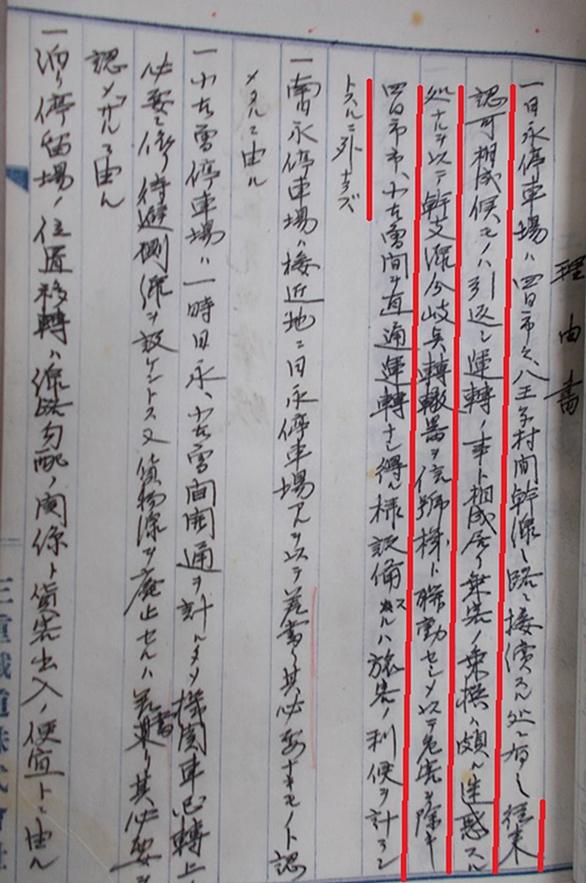 理由書
一日永停車場ハ四日市々、八王子村間幹線ト略々接続スル処ニ有之 従来
認可相成候モノハ引返シ運転ノ事ト相成居リ乗客ノ乗換ハ頗ル迷惑スル
処ナルヲ以テ幹支線分岐点轉轍器ヲ信号機ト聯動セシメ以テ危害ヲ除キ
四日市市、小古曽間ヲ直通運轉ナシ得ル様設備スルハ旅客ノ利便ヲ計ラン
トスルニ外ナラズ
一南日永停車場ハ接近地ニ日永停車場アルヲ以テ其必要ナキモノト認
メタルニ由ル
一小古曽停車場ハ一時日永、小古曽間開通ヲ計ルタメ機関車廻轉上
必要ニ依リ待避側線ヲ設ケントス又貨物線ヲ廃止セルハ其必要ヲ
認メザルニ由ル
一泊リ停留場ノ位置移轉ハ線路勾配ノ関係ト貨客出入ノ便宜トニ由ル
三重鐵道株式會社